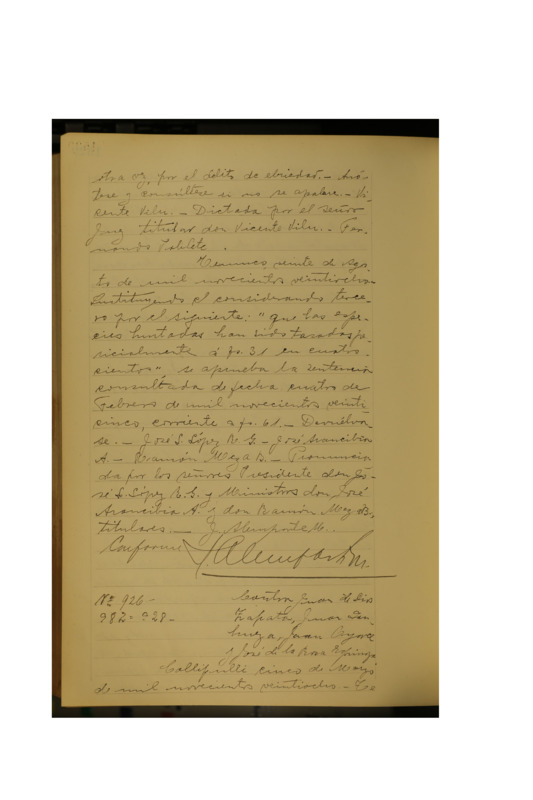 otra vez, por el delito de ebriedad.- Anó-
tese y consúltese si no se apelare.- Vi-
cente Vilu.- Dictada por el señor
Juez titular don Vicente Vilu.- Fer-
nando Poblete.
Temuco, veinte de Agos-
to de mil novecientos veintiocho.
Sustituyendo el considerando terce-
ro por el siguiente: "que las espe-
cies hurtadas han sido tasadas ju-
dicialmente a fs. 31 en cuatro-
cientos" se aprueba la sentencia
consultada de fecha cuatro de
Febrero de mil novecientos veinti
cinco, corriente a fs. 61.- Devuélva-
se.- José S. López R. G.- José Arancibia
A.- Ramón Meza B.- Pronuncia-
da por los señores Presidente don Jo-
sé S. López R. G. y Ministros don José
Arancibia A. y don Ramón Meza B.
titulares.-
Conforme
Nº 926-
982-28-
Contra Juan de Dios
Zapata, Juan
Juan
y José de la Rosa Espinoza
Collipulli cinco de Mayo
de mil novecientos veintiocho.-